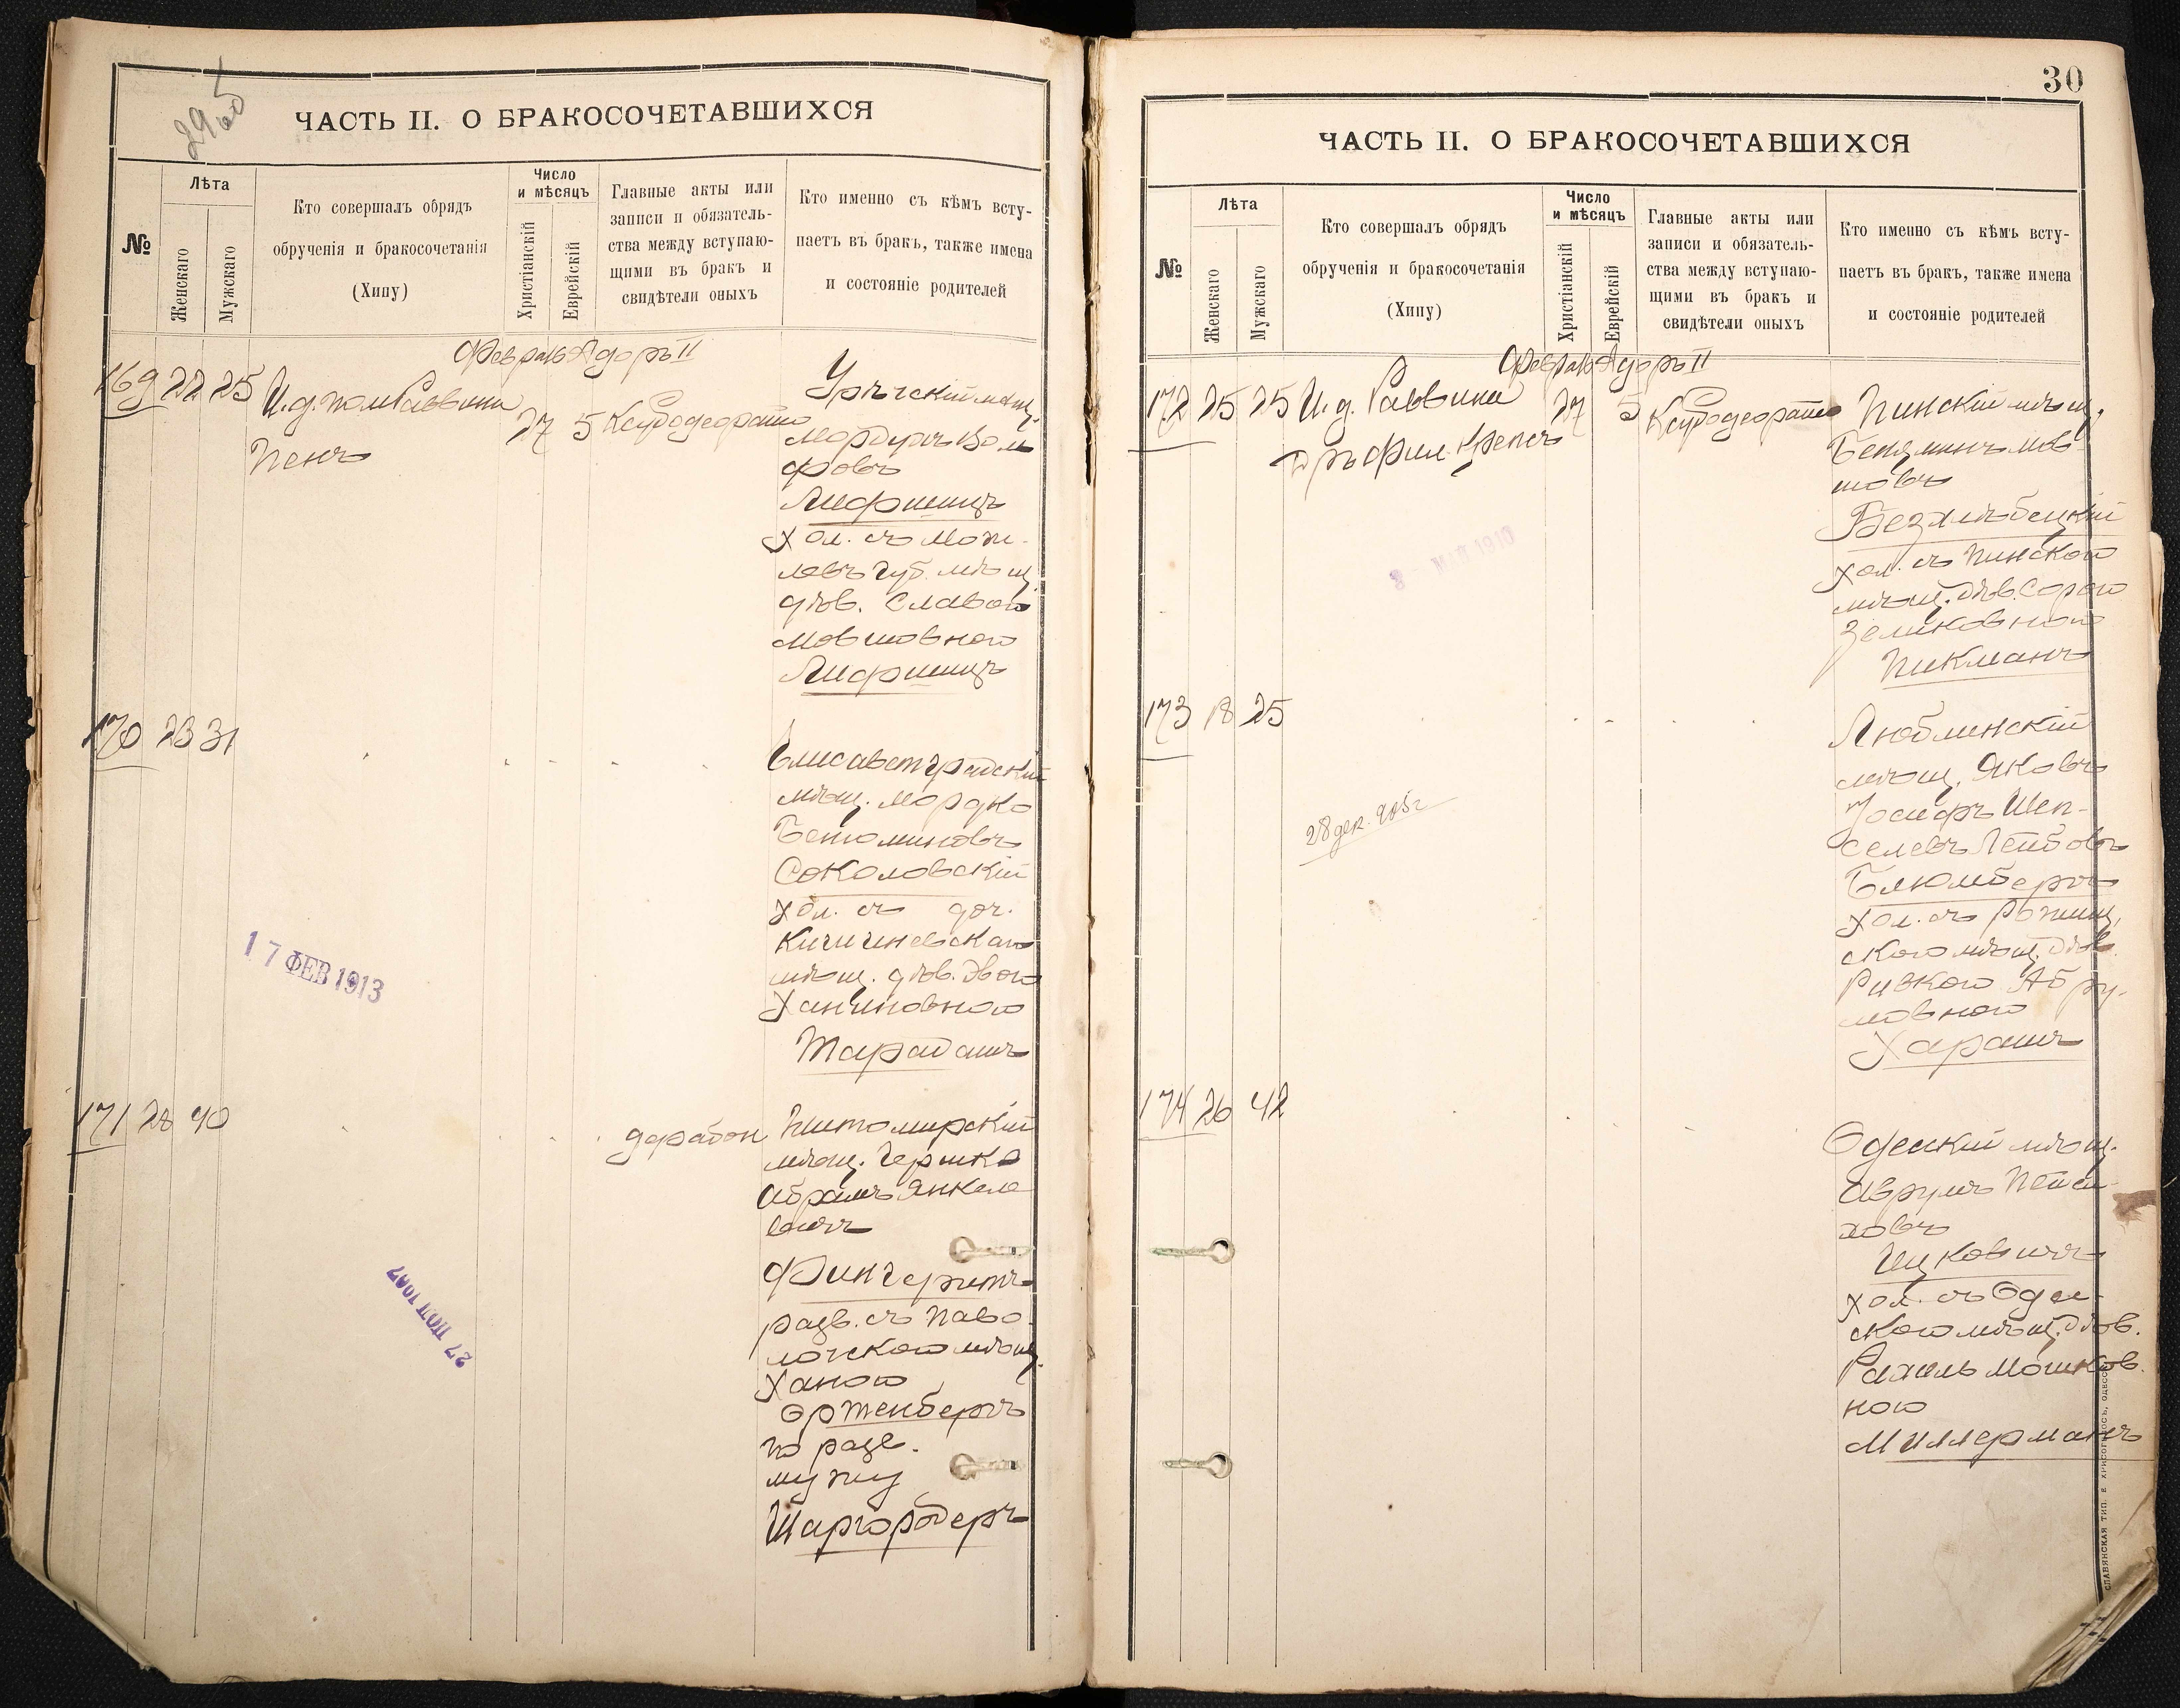 295
об
ЧАСТЬ II. О БРАКОСОЧЕТАВШИХСЯ
№
Лѣта
Женскаго
Мужскаго
Кто совершалъ обрядъ
обрученія и бракосочетанія
(Хипу)
Число
и мѣсяцъ
Христіанскій
Еврейскій
Главные акты или
записи и обязатель-
ства между вступаю-
щими въ бракъ и
свидѣтели оныхъ
Кто именно съ кѣмъ всту-
паетъ въ бракъ, также имена
и состояніе родителей
Февраль Адоръ II
169 22 25 И.д. пом Раввина
Пенъ
27 5
мѣщ.
Мордухъ Воль
фовъ
Лифшицъ
хол. съ Моги-
левъ губ. мѣщ
дѣв. Славою
Мовшовною
Лифшицъ
170 23 31
Елисаветградскій
мѣщ. Мордко
Беніоминовъ
Соколовскій
хол. съ доч.
Кишиневскаго
мѣщ. дѣв. Двою
Ханиновною
Тарадашъ
17 ФЕВ 1913
171 28 40
Житомирскій
мѣщ. Гершко
Абрамъ Янкеле
вичъ
Фингерутъ
разв. съ Паво
лочскою мѣщ.
Ханою
Эртенбергъ
по разв.
мужу
Шаргородеръ
30
ЧАСТЬ II. О БРАКОСОЧЕТАВШИХСЯ
№
Лѣта
Женскаго
Мужскаго
Кто совершалъ обрядъ
обрученія и бракосочетанія
(Хипу)
Число
и мѣсяцъ
Христіанскій
Еврейскій
Главные акты или
записи и обязатель-
ства между вступаю-
щими въ бракъ и
свидѣтели оныхъ
Кто именно съ кѣмъ всту-
паетъ въ бракъ, также имена
и состояніе родителей
Февраль Адоръ II
172 25 25 И.д. Раввина
Дръ Фил. Крепсъ
27 5
Пинскій мѣщ.
Беняминъ Мов-
шовъ
Безхлѣбецкій
хол. съ Пинскою
мѣщ. дѣв. Сорою
Зеликовною
Пикманъ
8 МАЙ 1910
173 18 25
28 дек. 905 г
Люблинскій
мѣщ. Яковъ
Іосифъ Шеп-
селевъ Лейбовъ
Блюмбергъ
хол. съ
скою мѣщ. дѣв.
Ривкою Абру-
мовною
Харашъ
174 26 42
Одесскій мѣщ.
Аврумъ Пейса-
ховъ
Ицковичъ
хол. съ Одес-
скою мѣщ. дѣв.
Рахиль Мошков-
ною
Миллерманъ
СЛАВЯНСКАЯ ТИП. Е ХРИСОГЕЛОСЪ, ОДЕССА